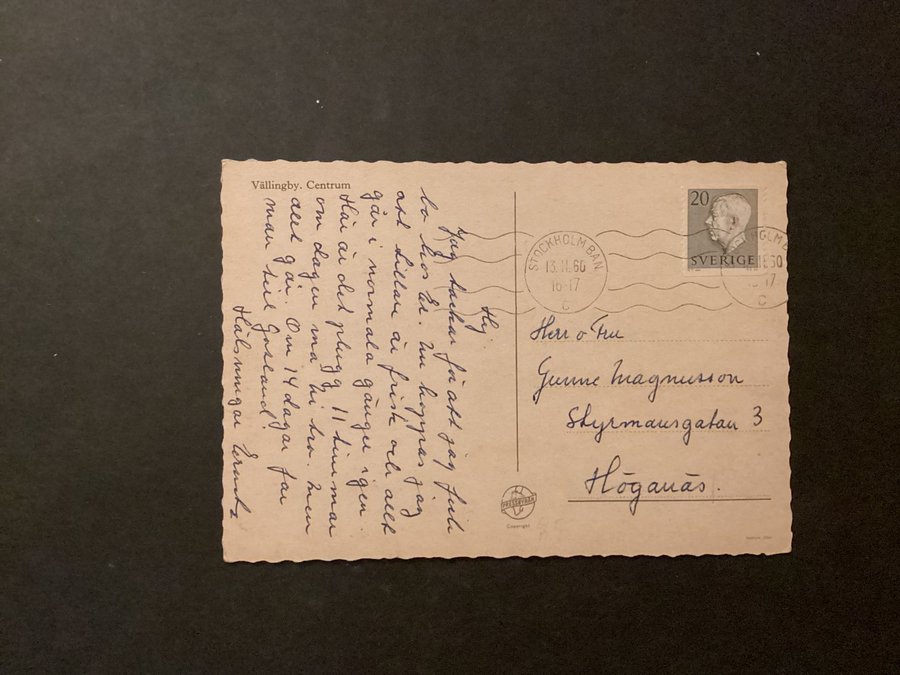 Vällingby. Centrum
Hej.
Jag tackar så att jag fick
bo hos Er. Nu hoppas jag
att lillan är frisk och allt
går i normala gånger igen.
Här är det plugg 11 timmar
om dagen må ni tro. Men
allt går. Om 14 dagar far
man till Gotland!
Hälsningar
20
SVERIGE
STOCKHOLM BAN.
13.11.60
16-17
C
Herr o Fru
Gunne Magnusson
Styrmansgatan 3
Höganäs.
PRESSBYRÅN
Copyright